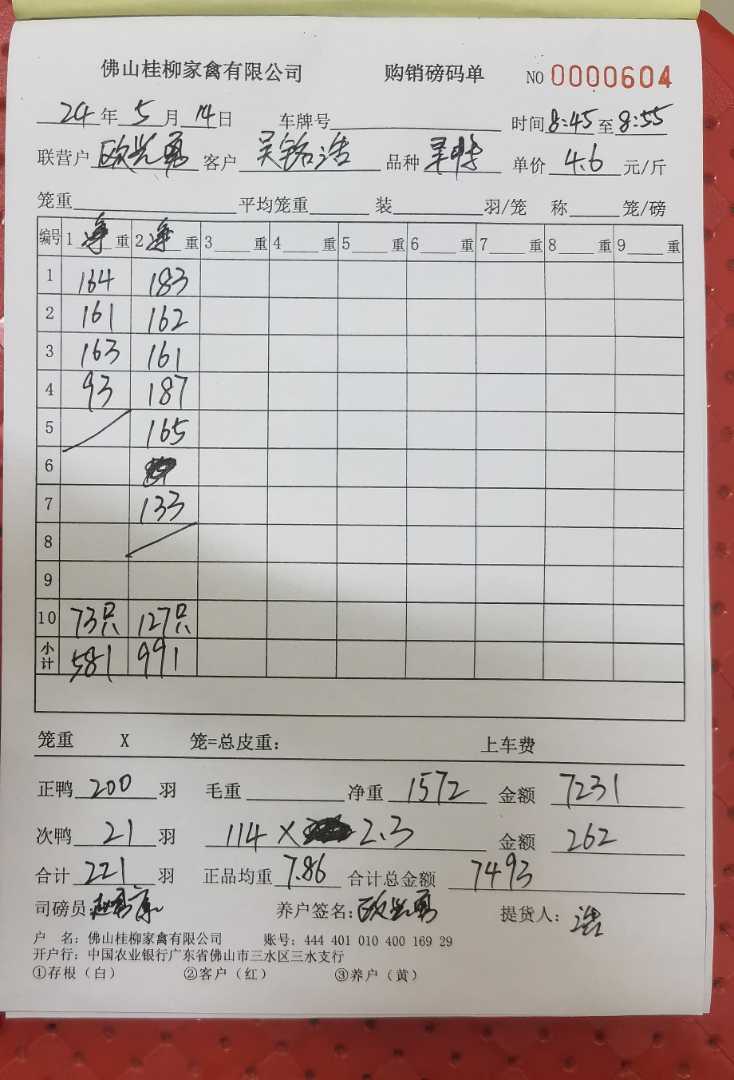 佛山桂柳家禽有限公司 购销磅码单 NO 0000604
24年5月14日 车牌号 时间8:45至8:55
联营户 欧光勇 客户 吴铭浩 品种 单价 4.6 元/斤
笼重 平均笼重 装 羽/笼 称 笼/磅
编号 1 净 重 2 净 重 3 重 4 重 5 重 6 重 7 重 8 重 9 重
1 164 183
2 161 162
3 163 161
4 93 187
5 165
6
7 133
8
9
10 73只 127只
小计 581 991
笼重 X 笼=总皮重： 上车费
正鸭 200 羽 毛重 净重 1572 金额 7231
次鸭 21 羽 114 X 2.3 金额 262
合计 221 羽 正品均重 7.86 合计总金额 7493
司磅员： 养户签名：欧光勇 提货人：浩
户 名：佛山桂柳家禽有限公司 账号：444 401 010 400 169 29
开户行：中国农业银行广东省佛山市三水区三水支行
①存根（白） ②客户（红） ③养户（黄）